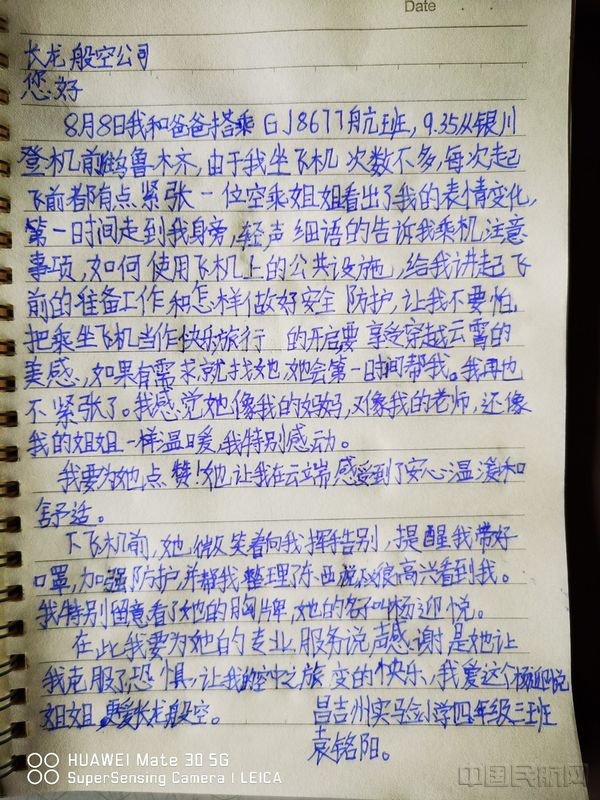 Date
长龙般空公司
您好
8月8日我和爸爸搭乘GJ8677航班,9.35从银川
登机前乌鲁木齐,由于我坐飞机次数不多,每次起
飞前都有点紧张一位空乘姐姐看出了我的表情变化,
第一时间走到我身旁,轻声细语的告诉我乘机注意
事项,如何使用飞机上的公共设施,给我讲起飞
前的准备工作和怎样做好安全防护,让我不要怕,
把乘坐飞机当作快乐旅行的开启要享受穿越云霄的
美感,如果有需求就找她,她会第一时间帮我。我再也
不紧张了。我感觉她像我的妈妈,又像我的老师,还像
我的姐姐一样温暖,我特别感动。
我要为她点赞!她让我在云端感受到了安心温暖和
舒适。
下飞机前,她微笑着向我挥手告别,提醒我带好
口罩,加强防护,并帮我整理了东西说叔很高兴看到我。
我特别留意看了她的胸牌,她的名叫杨迎悦。
在此我要为她的专业服务说声感谢是她让
我克服了恐惧,让我的空中之旅变的快乐,我爱这个杨迎悦
姐姐更爱长龙般空。
昌吉州实马剑小学四年级三班
袁铭阳。
HUAWEI Mate 30 5G
SuperSensing Camera | LEICA
中国民航网